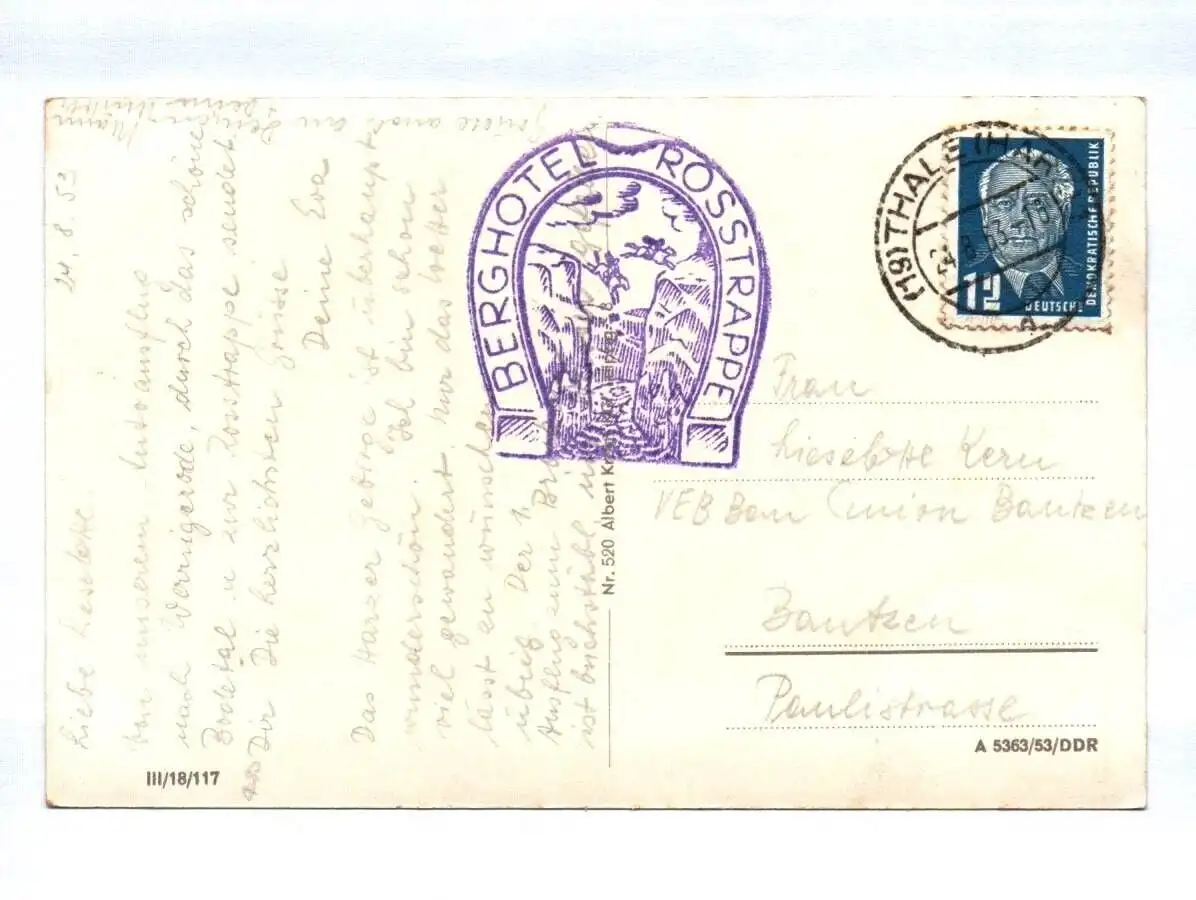 24. 8. 53
Liebe Leselotte.
Von unserem Autoausflug
nach Wernigerode, durch das schöne
Bodetal u zur Rosstrappe sendet
Dir Die herzlichsten Grüsse
Deine Eva
Das Harzer Gebirge ist überhaupt
wunderschön. Ich bin schon
viel gewandert. Nur das Wetter
lässt zu wünschen
übrig. Der 1.
Ausflug zum
ist buchstäbl. ins
Grüsse auch an
Deinen Mann
Deine Mutter
BERGHOTEL ROSSTRAPPE
Nr. 520 Albert
(19) THALE (HARZ)
12
DEUTSCHE
DEMOKRATISCHE REPUBLIK
Frau
Lieselotte Kern
VEB Bau Union Bautzen
Bautzen
Paulistrasse
A 5363/53/DDR
III/18/117